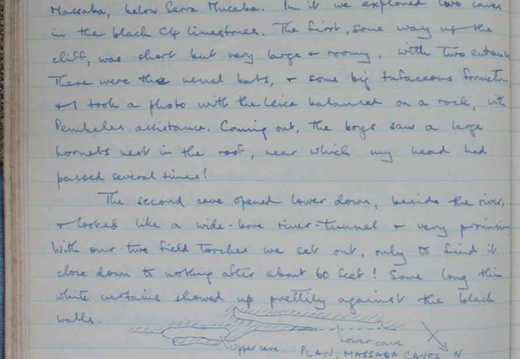 Massaba, below Serra Mucaba. In it we explored two caves
in the black C4 limestones. The first, some way up the
cliff, was short but very large & roomy, with two
There were the usual bats, & some big tufaceous
& I took a photo with the Leica balanced on a rock, with
assistance. Coming out, the boys saw a large
hornets nest in the roof, near which my head had
passed several times!
The second cave opened lower down, beside the river,
& looked like a wide-bore river-tunnel & very
With our two field torches we set out, only to find it
close down to nothing after about 60 feet! Some long thin
white curtains showed up prettily against the black
walls.
Lower cave
Upper cave
PLAN, MASSABA CAVES N